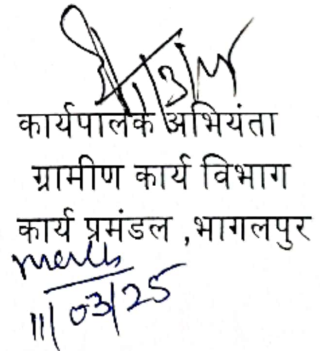 11/3/25
कार्यपालक अभियंता
ग्रामीण कार्य विभाग
कार्य प्रमंडल ,भागलपुर
11/03/25